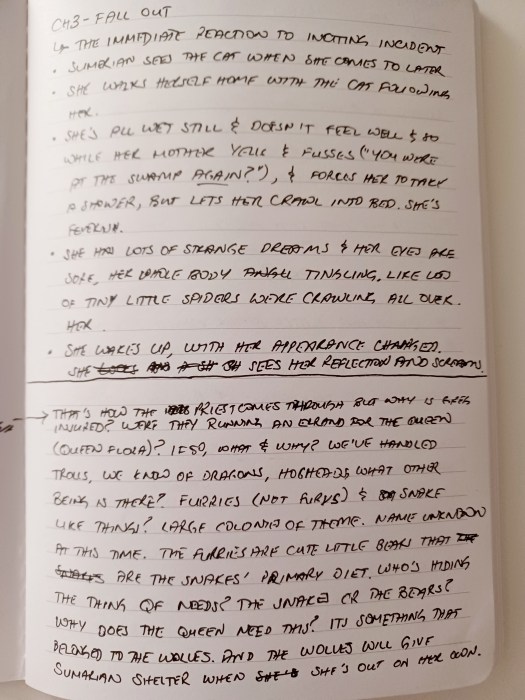 CH3 - FALL OUT
↳ THE IMMEDIATE REACTION TO INCITING INCIDENT
• SUMERIAN SEES THE CAT WHEN SHE COMES TO LATER
• SHE WALKS HERSELF HOME WITH THE CAT FOLLOWING
HER.
• SHE'S ALL WET STILL & DOESN'T FEEL WELL & SO
WHILE HER MOTHER YELLS & FUSSES ("YOU WERE
AT THE SWAMP AGAIN?"), & FORCES HER TO TAKE
A SHOWER, BUT LETS HER CRAWL INTO BED. SHE'S
FEVERISH.
• SHE HAS LOTS OF STRANGE DREAMS & HER EYES ARE
SORE, HER WHOLE BODY TINGLING, LIKE
OF TINY LITTLE SPIDERS WERE CRAWLING ALL OVER
HER.
• SHE WAKES UP, WITH HER APPEARANCE CHANGED.
SHE SEES HER REFLECTION AND SCREAMS.
→ THAT'S HOW THE PRIEST COMES THROUGH BUT WHY IS
INJURED? WERE THEY RUNNING AN ERRAND FOR THE QUEEN
(QUEEN FLORA)? IF SO, WHAT & WHY? WE'VE HANDLED
TROLLS, WE KNOW OF DRAGONS, HOGHEADS WHAT OTHER
BEING IS THERE? FURRIES (NOT FURYS) & SNAKE
LIKE THINGS? LARGE COLONIES OF THEME. NAME UNKNOWN
AT THIS TIME. THE FURRIES ARE CUTE LITTLE BEARS THAT
ARE THE SNAKES' PRIMARY DIET. WHO'S HIDING
THE THING QF NEEDS? THE SNAKES OR THE BEARS?
WHY DOES THE QUEEN NEED THIS? ITS SOMETHING THAT
BELONGED TO THE WOLLES. AND THE WOLLES WILL GIVE
SUMARIAN SHELTER WHEN SHE'S OUT ON HER OWN.